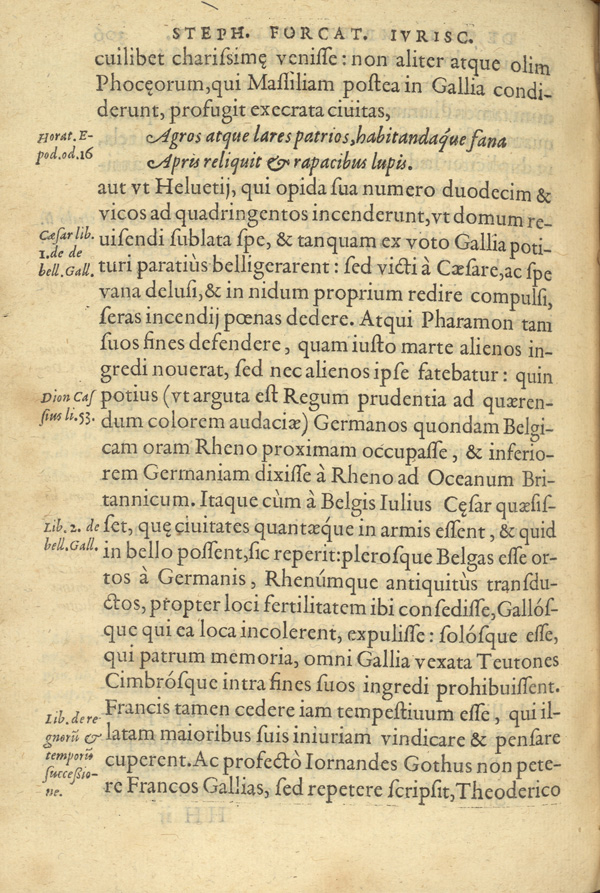 STEPH. FORCAT. IVRISC.
cuilibet chariſsimę veniſſe: non aliter atque olim
Phocęorum, qui Maſſiliam poſtea in Gallia condi-
derunt, profugit execrata ciuitas,
Horat. E-
pod. od. 16
Agros atque lares patrios, habitandáque fana
Apris reliquit & rapacibus lupis.
aut vt Heluetij, qui opida ſua numero duodecim &
vicos ad quadringentos incenderunt, vt domum re-
Cæſar lib.
1. de de
bell. Gall.
uiſendi ſublata ſpe, & tanquam ex voto Gallia poti-
turi paratiùs belligerarent: ſed victi à Cæſare, ac ſpe
vana deluſi, & in nidum proprium redire compulſi,
ſeras incendij pœnas dedere. Atqui Pharamon tam
ſuos fines defendere, quam iuſto marte alienos in-
gredi nouerat, ſed nec alienos ipſe fatebatur: quin
Dion Caſ
ſius li. 53.
potius (vt arguta eſt Regum prudentia ad quæren-
dum colorem audaciæ) Germanos quondam Belgi-
cam oram Rheno proximam occupaſſe, & inferio-
rem Germaniam dixiſſe à Rheno ad Oceanum Bri-
tannicum. Itaque cùm à Belgis Iulius Cęſar quæſiſ-
Lib. 2. de
bell. Gall.
ſet, quę ciuitates quantæque in armis eſſent, & quid
in bello poſſent, ſic reperit: pleroſque Belgas eſſe or-
tos à Germanis, Rhenúmque antiquitùs tranſdu-
ctos, propter loci fertilitatem ibi conſediſſe, Gallóſ-
que qui ea loca incolerent, expuliſſe: ſolóſque eſſe,
qui patrum memoria, omni Gallia vexata Teutones
Cimbróſque intra fines ſuos ingredi prohibuiſſent.
Lib. de re
gnorū &
temporū
ſucceßio-
ne.
Francis tamen cedere iam tempeſtiuum eſſe, qui il-
latam maioribus ſuis iniuriam vindicare & penſare
cuperent. Ac profectò Iornandes Gothus non pete-
re Francos Gallias, ſed repetere ſcripſit, Theoderico